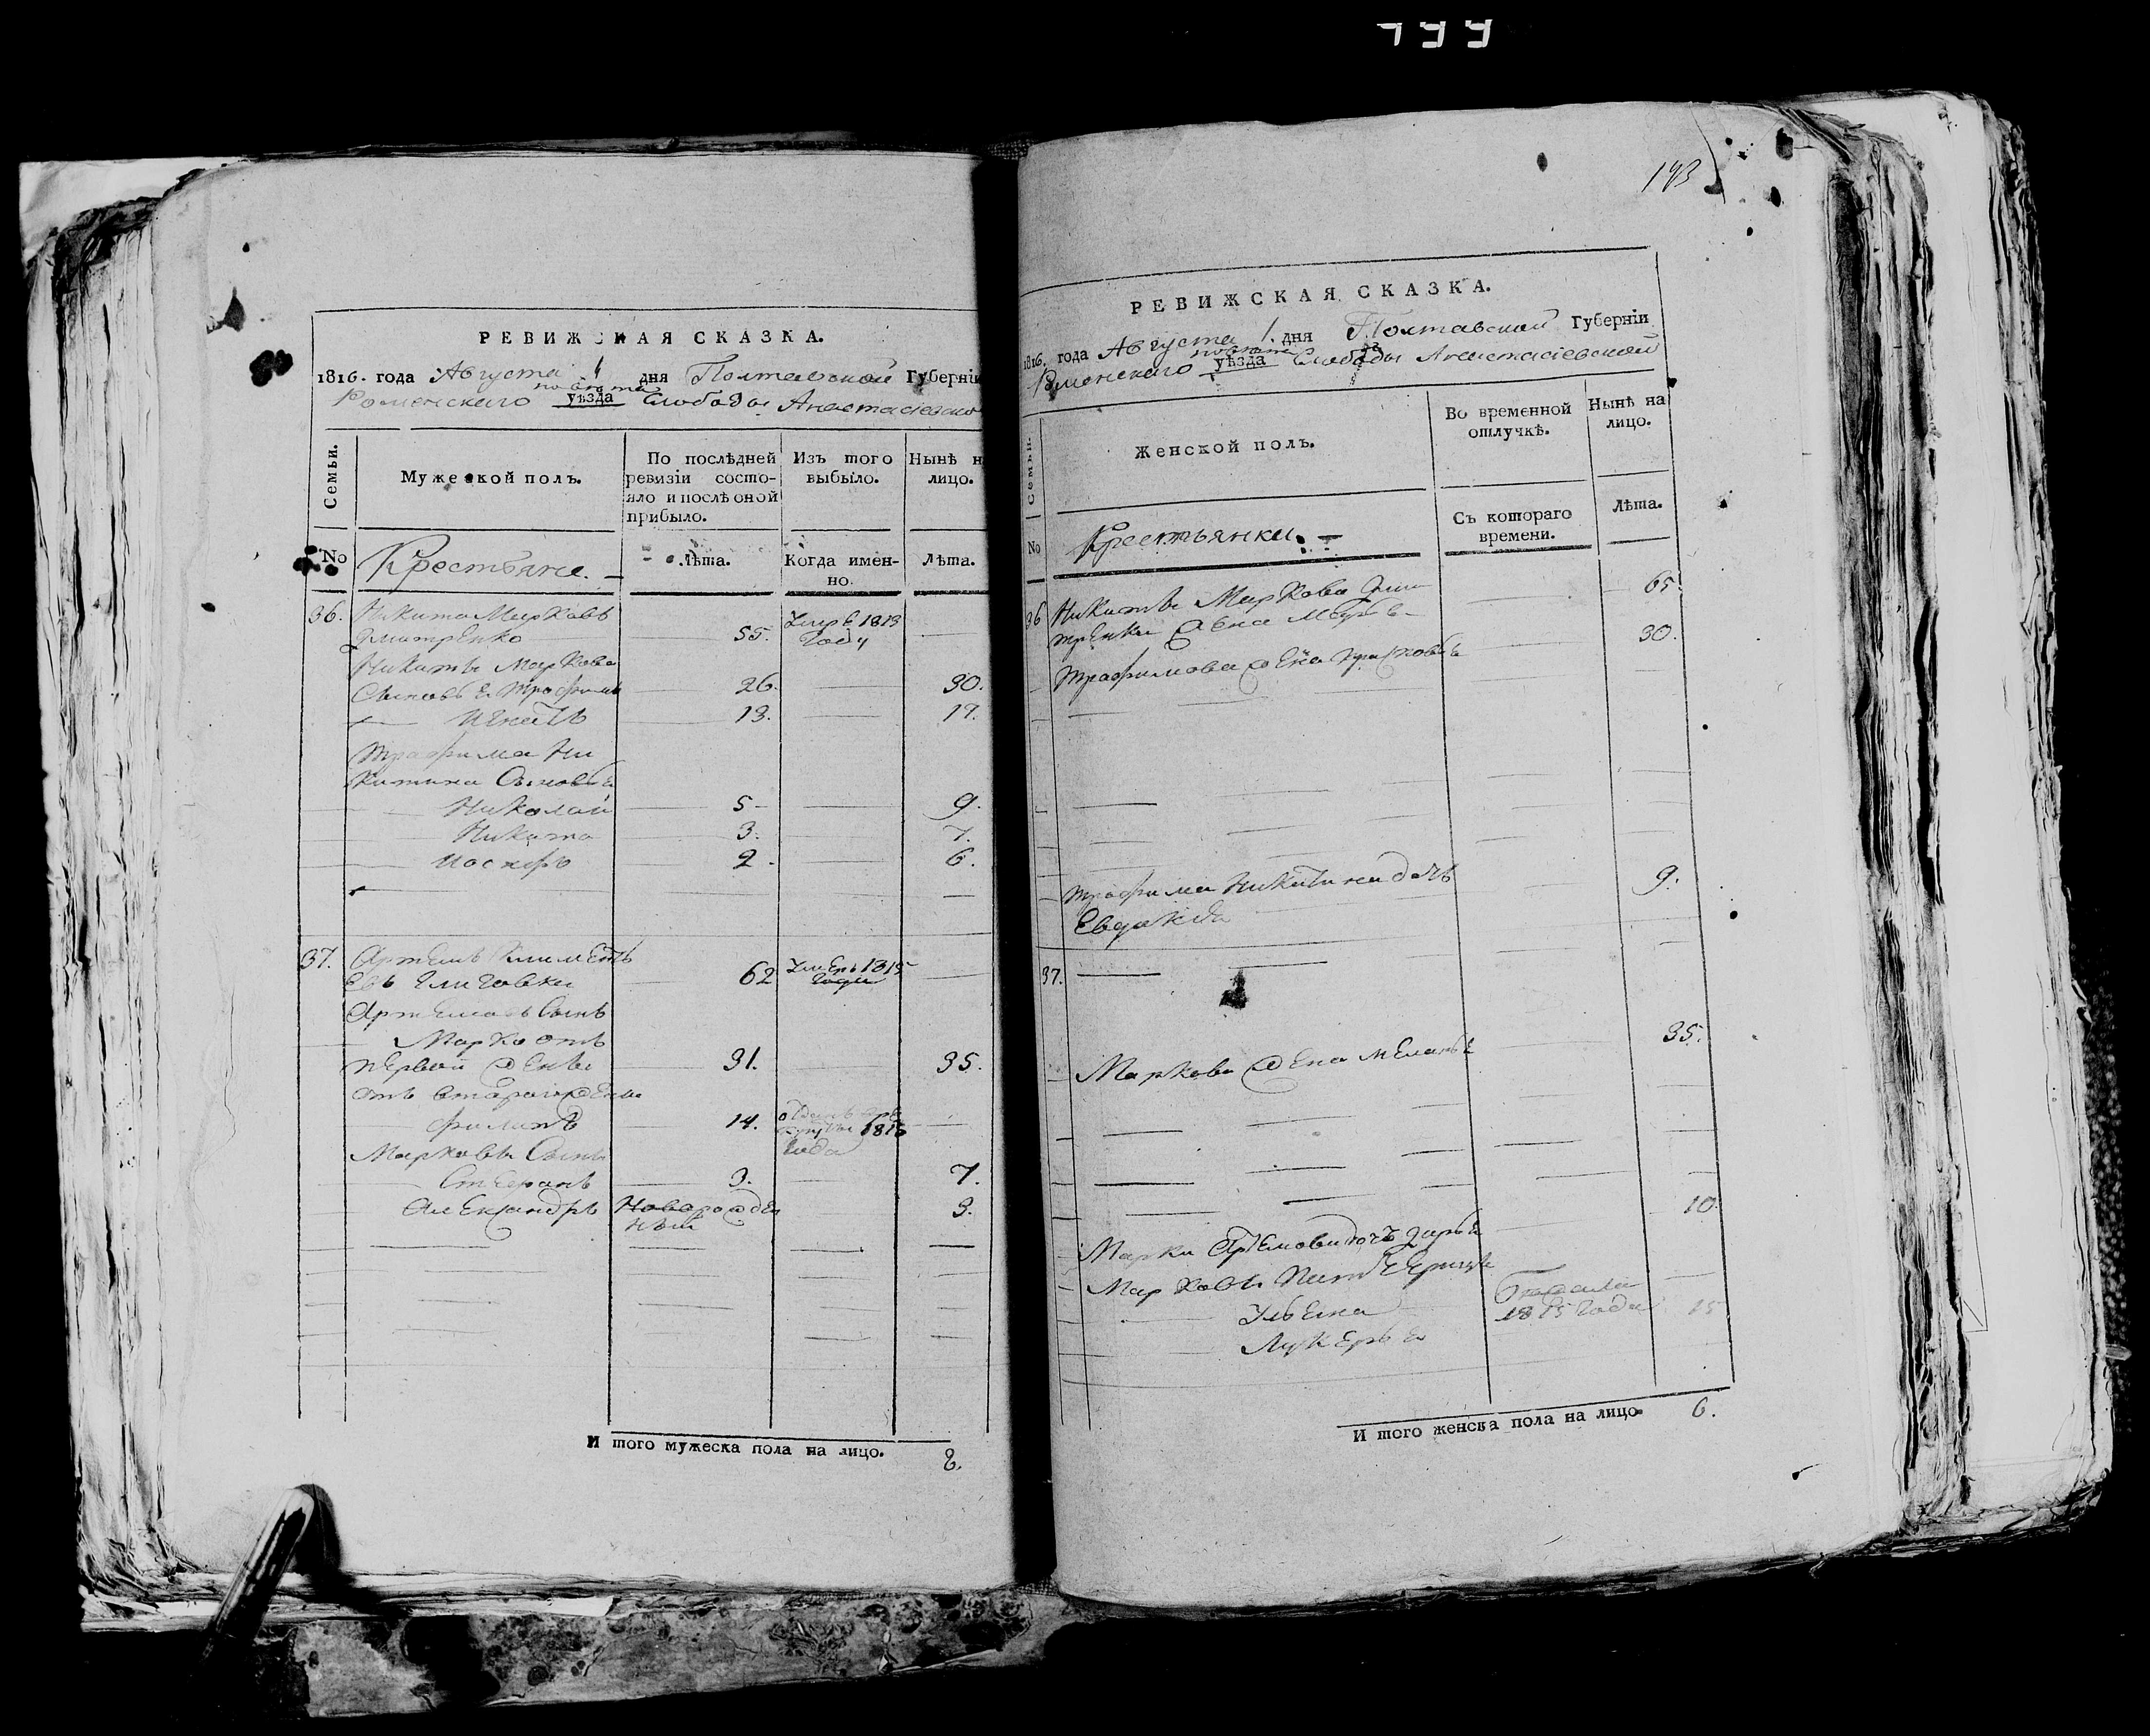 193
РЕВИЖСКАЯ СКАЗКА.
1816. года Августа 1 дня Полтавской Губерніи
повѣта
Роменскаго уѣзда Слободы Анастасіевской
Семьи.
Мужеской полъ.
По послѣдней ревизіи состо-
яло и послѣ оной
прибыло.
Изъ того
выбыло.
Нынѣ н
лицо.
No
Крестьяне.
Лѣта.
Когда имен-
но.
Лѣта.
36. Никита Марковъ
Дмитренко 55. Умре 1813
году
Никиты Маркова
Сыновья Трофимъ 26. 30.
Игнатъ 13. 17.
Трофима Ни
китина Сыновья
Николай 5 9.
Никита 3. 7.
Иосифъ 2. 6.
37. Артемъ Климентъ
евъ 62 Умеръ 1815
года
Артемовъ Сынъ
Марко отъ
первой жены 31. 35.
отъ второй жены
Филипъ 14. 1813
года
Марковы Сынъ
Стефанъ 3. 7.
Александръ Новорожде 3.
ный
И того мужеска пола на лицо. 8.
РЕВИЖСКАЯ СКАЗКА.
1816. года Августа 1. дня Полтавской Губерніи
повѣта
Роменскаго уѣзда Слободы Анастасіевской
Семьи.
Женской полъ.
Во временной
отлучкѣ.
Нынѣ на
лицо.
No
Крестьянки.
Съ котораго
времени.
Лѣта.
36 Никиты Маркова Дми 65.
тренка жена
Трофимова жена Прасковья 30.
Трофима Никитина дочь 9.
Евдокія
37.
Маркова жена Меланья 35.
Марки Артемова дочь Дарья 10.
Марковы
Ульяна 1815 года 15
Лукерья
И того женска пола на лицо 6.